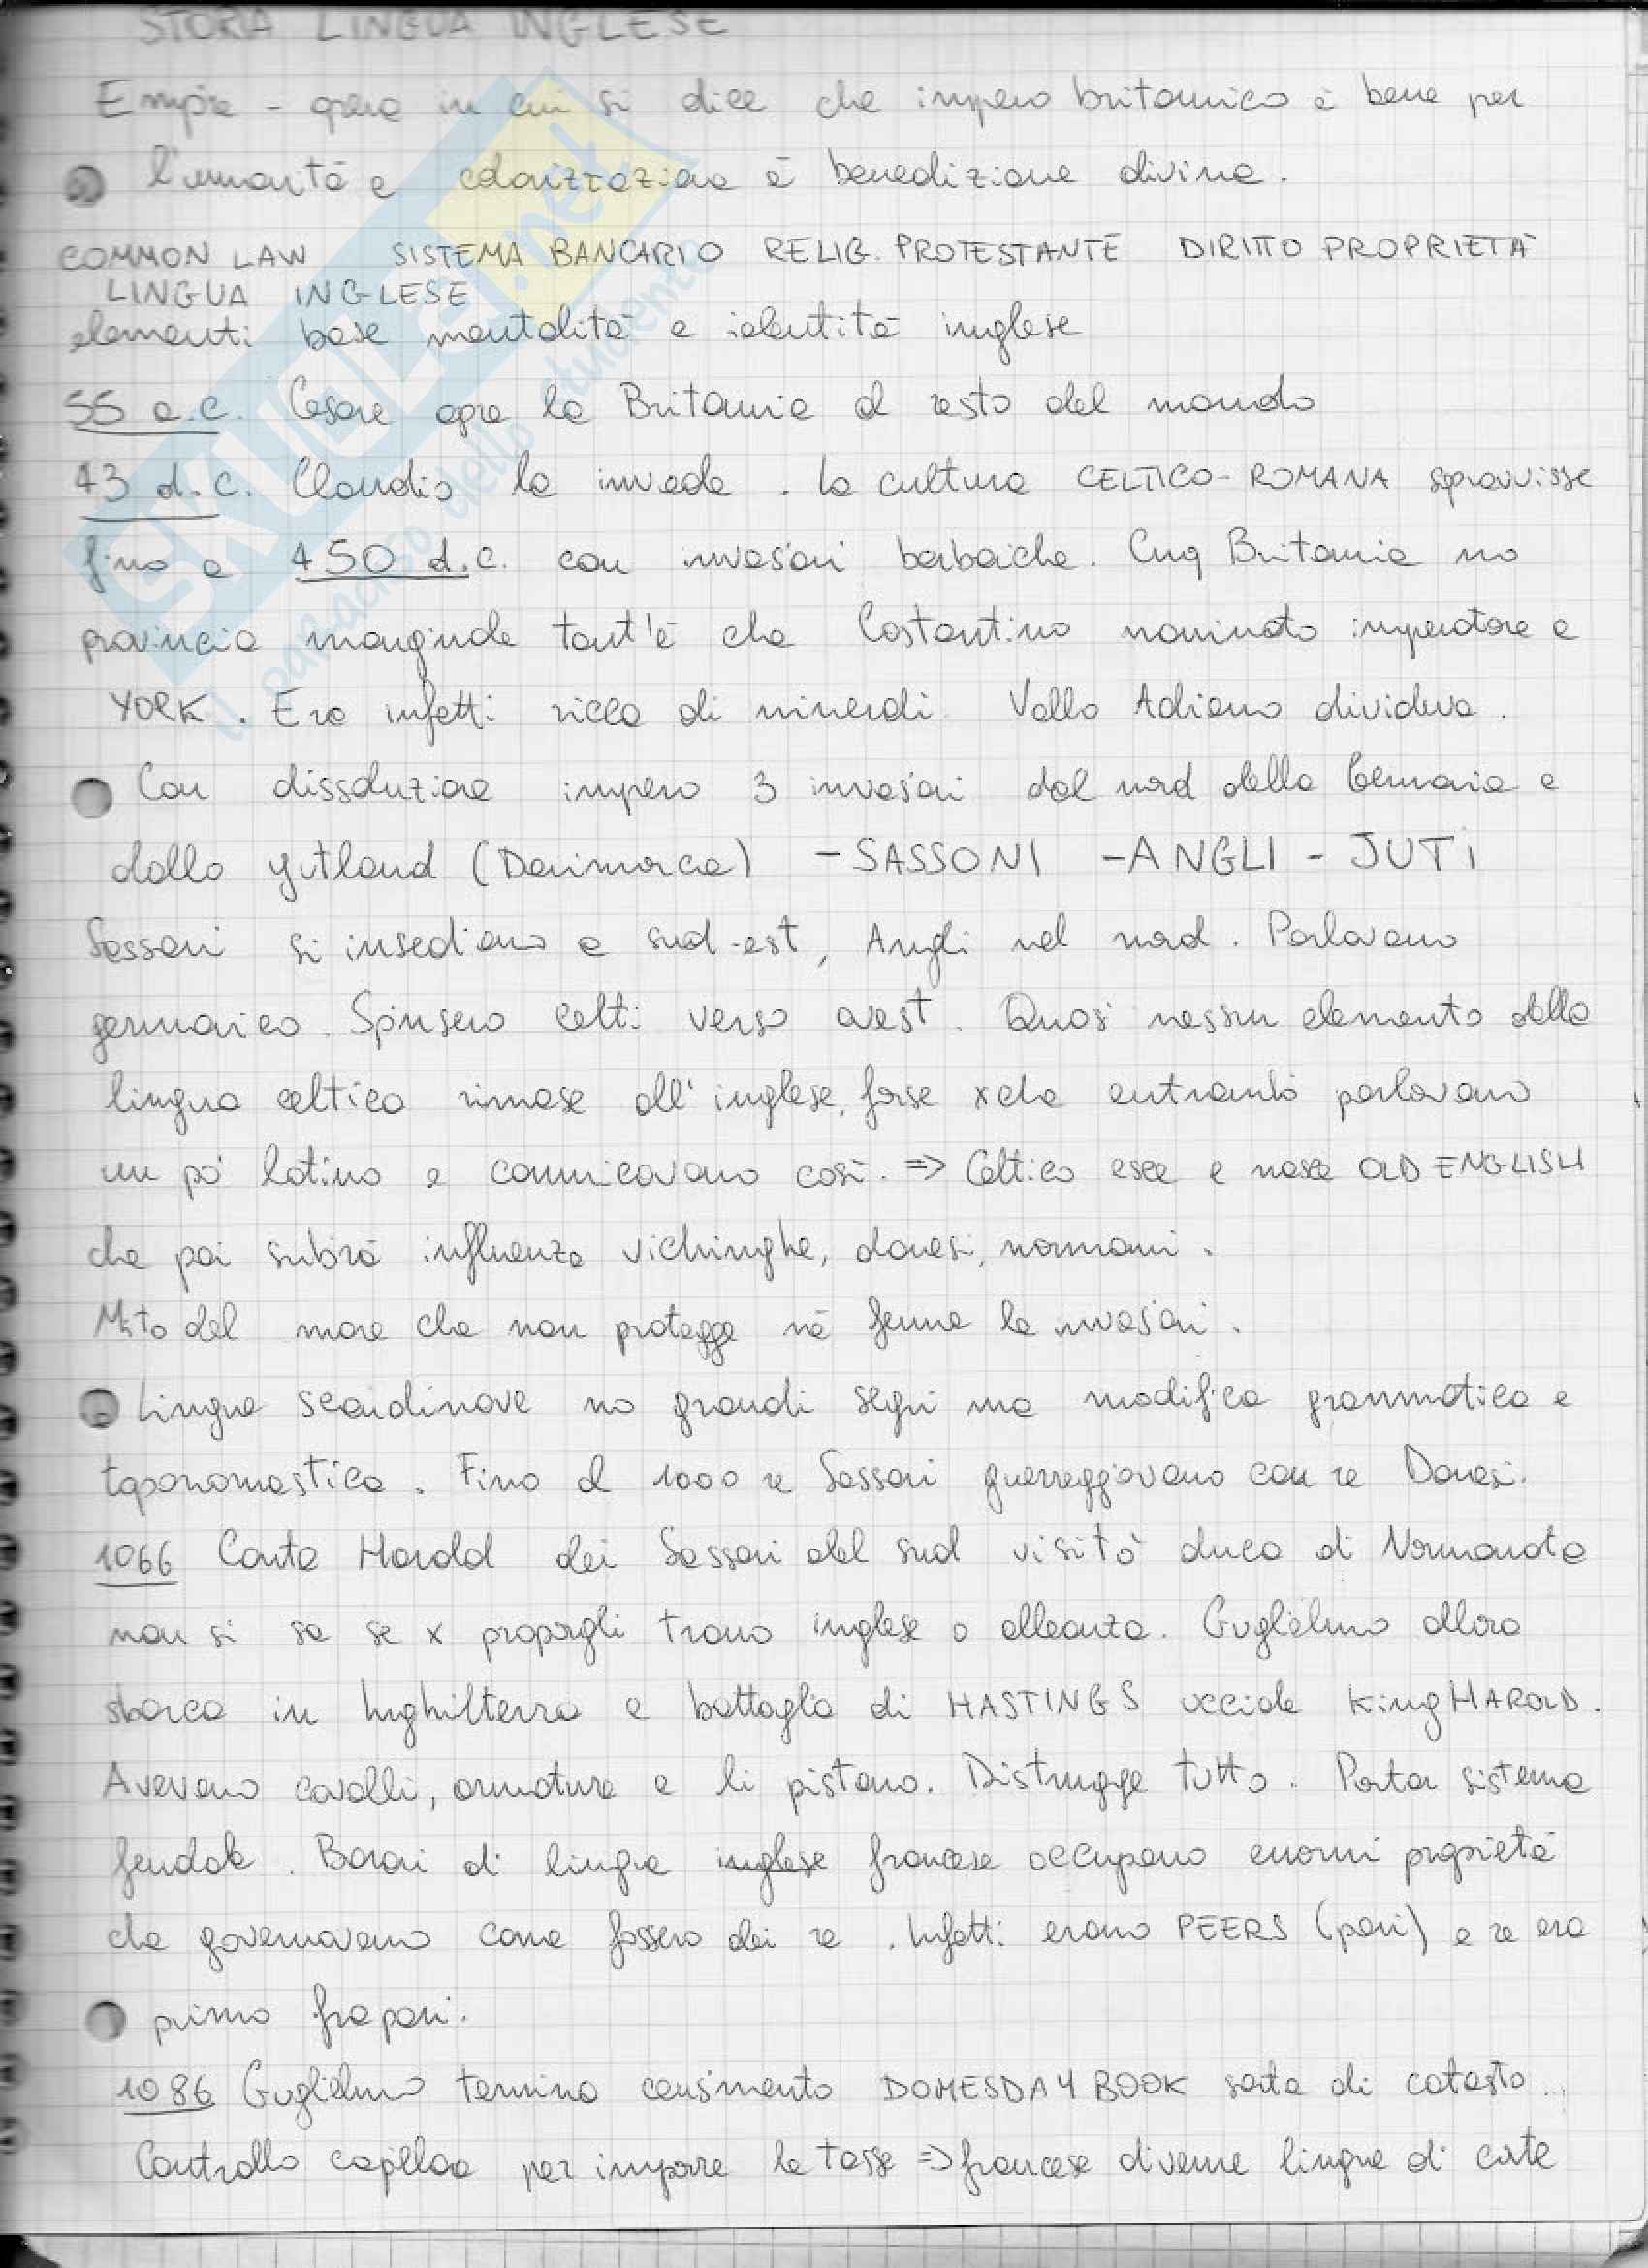 STORIA LINGUA INGLESE
Empire - opera in cui si dice che impero britannico è bene per
l'umanità e colonizzazione è benedizione divina.
COMMON LAW SISTEMA BANCARIO RELIG. PROTESTANTE DIRITTO PROPRIETÀ
LINGUA INGLESE
elementi base mentalità e identità inglese
55 a.c. Cesare apre la Britannia al resto del mondo
43 d.c. Claudio la invade. La cultura CELTICO-ROMANA sopravvisse
fino a 450 d.c. con invasioni barbariche. Cmq Britannia no
provincia marginale tant'è che Costantino nominato imperatore a
YORK. Era infatti ricca di minerali. Vallo Adriano divideva.
Con dissoluzione impero 3 invasioni dal nord della Germania e
dallo Jutland (Danimarca) - SASSONI - ANGLI - JUTI
Sassoni si insediano a sud-est, Angli nel nord. Parlavano
germanico. Spinsero celti verso ovest. Quasi nessun elemento della
lingua celtica rimase all'inglese, forse xche entrambi parlavano
un pò latino e comunicavano così. => Celtico esce e nasce OLD ENGLISH
che poi subirà influenze vichinghe, danesi, normanni.
Mito del mare che non protegge né ferma le invasioni.
Lingue scandinave no grandi segni ma modifica grammatica e
toponomastica. Fino al 1000 re Sassoni guerreggiavano con re Danesi.
1066 Conte Harold dei Sassoni del sud visitò duca di Normandia
non si sa se x proporgli trono inglese o alleanza. Guglielmo allora
sbarca in Inghilterra e battaglia di HASTINGS uccide King HAROLD.
Avevano cavalli, armature e li pistano. Distrugge tutto. Porta sistema
feudale. Baroni di lingua inglese francese occupano enormi proprietà
che governavano come fossero dei re. Infatti erano PEERS (pari) e re era
primo fra pari.
1086 Guglielmo termina censimento DOMESDAY BOOK sorta di catasto..
Controllo capillare per imporre le tasse => francese divenne lingua di corte
SKUOLA.net
il paradiso dello studente